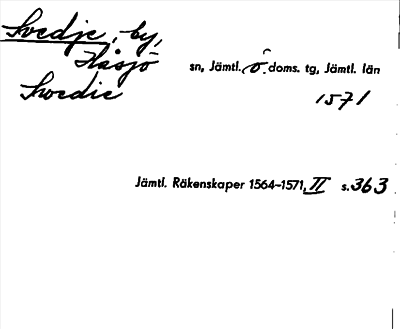 Svedje, by,
Håsjö sn, Jämtl. ö. doms. tg, Jämtl. län
Svedie 1571
Jämtl. Räkenskaper 1564–1571, II s. 363